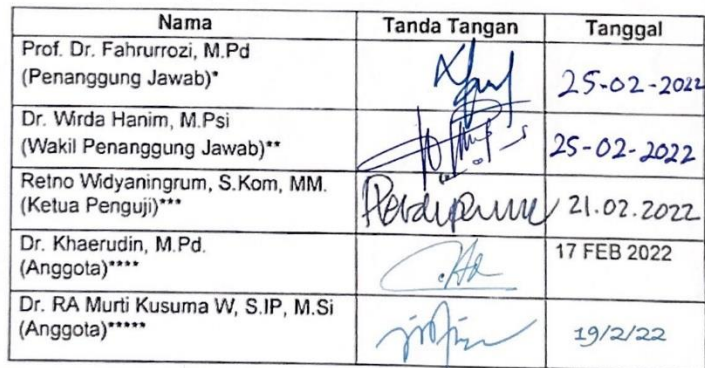 Nama Tanda Tangan Tanggal
Prof. Dr. Fahrurrozi, M.Pd
(Penanggung Jawab)* 25-02-2022
Dr. Wirda Hanim, M.Psi
(Wakil Penanggung Jawab)** 25-02-2022
Retno Widyaningrum, S.Kom, MM.
(Ketua Penguji)*** 21.02.2022
Dr. Khaerudin, M.Pd. 17 FEB 2022
(Anggota)****
Dr. RA Murti Kusuma W, S.IP, M.Si
(Anggota)***** 19/2/22